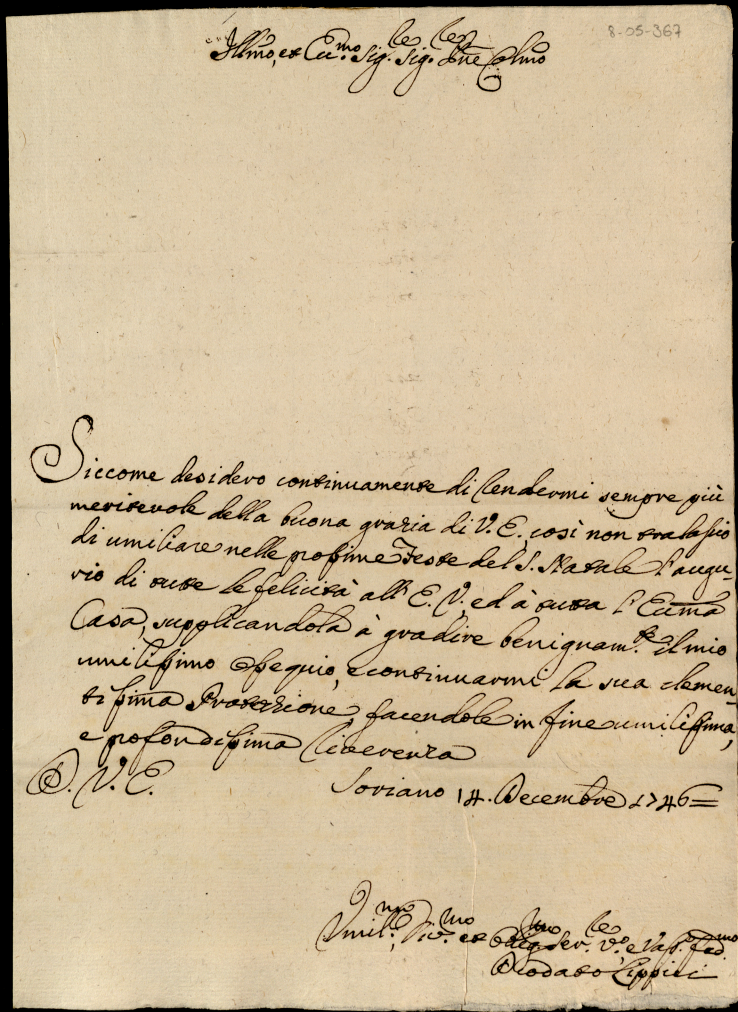 8-05-367
Illmo, et Ecc.mo Sig.re Sig.re Pne Colmo
Siccome desidero continuamente di rendermi sempre più
meritevole della buona grazia di V. E. così non tralascio
di umiliare nelle prossime Feste del S. Natale l'augu-
rio di tutte le felicità all'E. V., ed à tutta l'Eccma
Casa, supplicandola à gradire benignam.te il mio
umilissimo ossequio, e continuarmi la sua clemen-
tissima Protezione, facendole in fine umilissima,
e profondissima riverenza
D. V. E.
Soriano 14. Decembre 1746
Umil.mo Div.mo et Obblig.mo Ser.re V.o e Vass.o fed.mo
Diodato Lippici